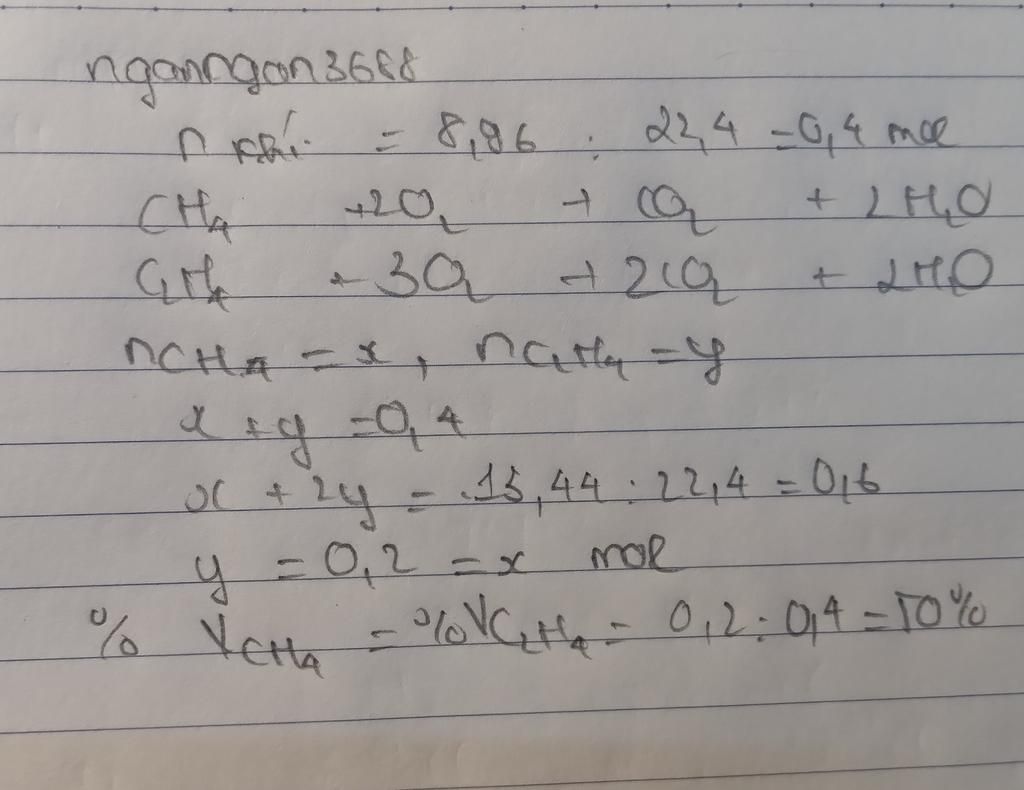 nganngan3688
n khí = 8,96 : 22,4 = 0,4 mol
CH4 + 2O2 → CO2 + 2H2O
C2H4 + 3O2 → 2CO2 + 2H2O
nCH4 = x, nC2H4 = y
x + y = 0,4
x + 2y = 13,44 : 22,4 = 0,6
y = 0,2 = x mol
% VCH4 = %VC2H4 = 0,2 : 0,4 = 50%